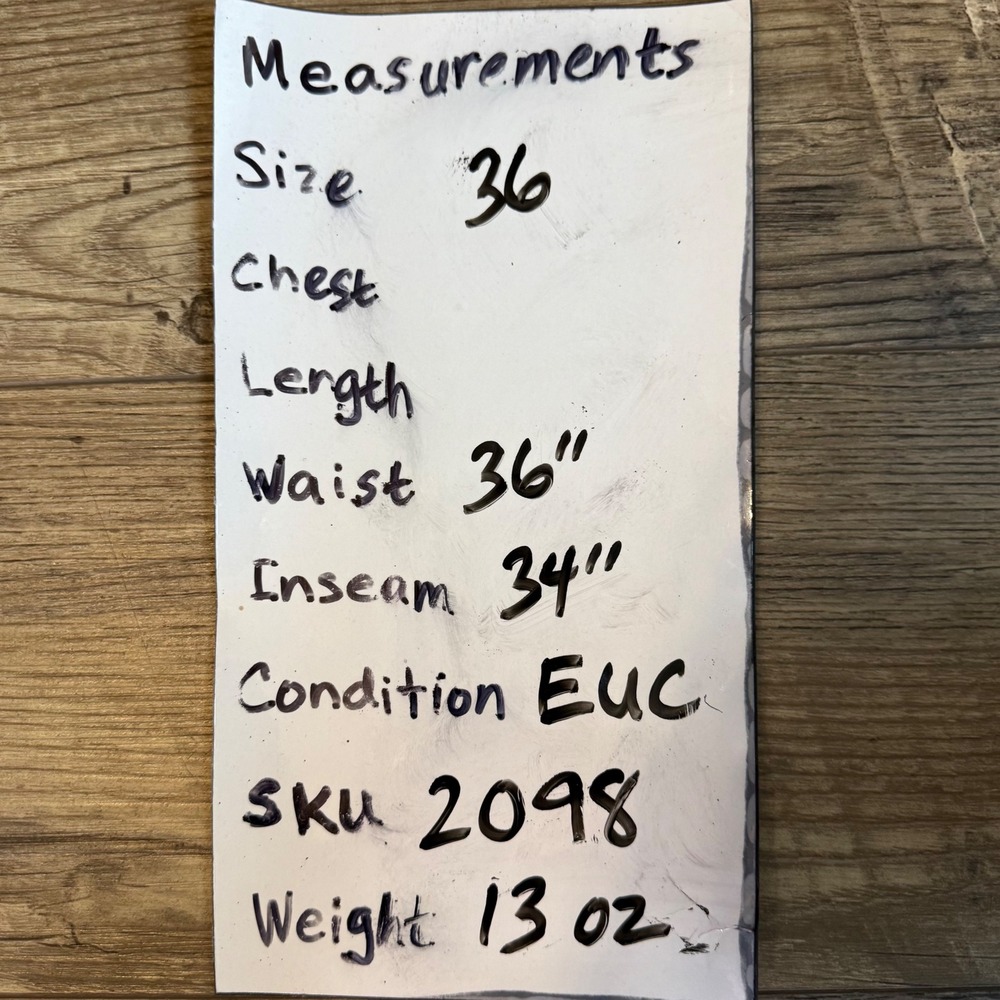 Measurements
Size 36
Chest
Length
Waist 36"
Inseam 34"
Condition EUC
SKU 2098
Weight 13 oz